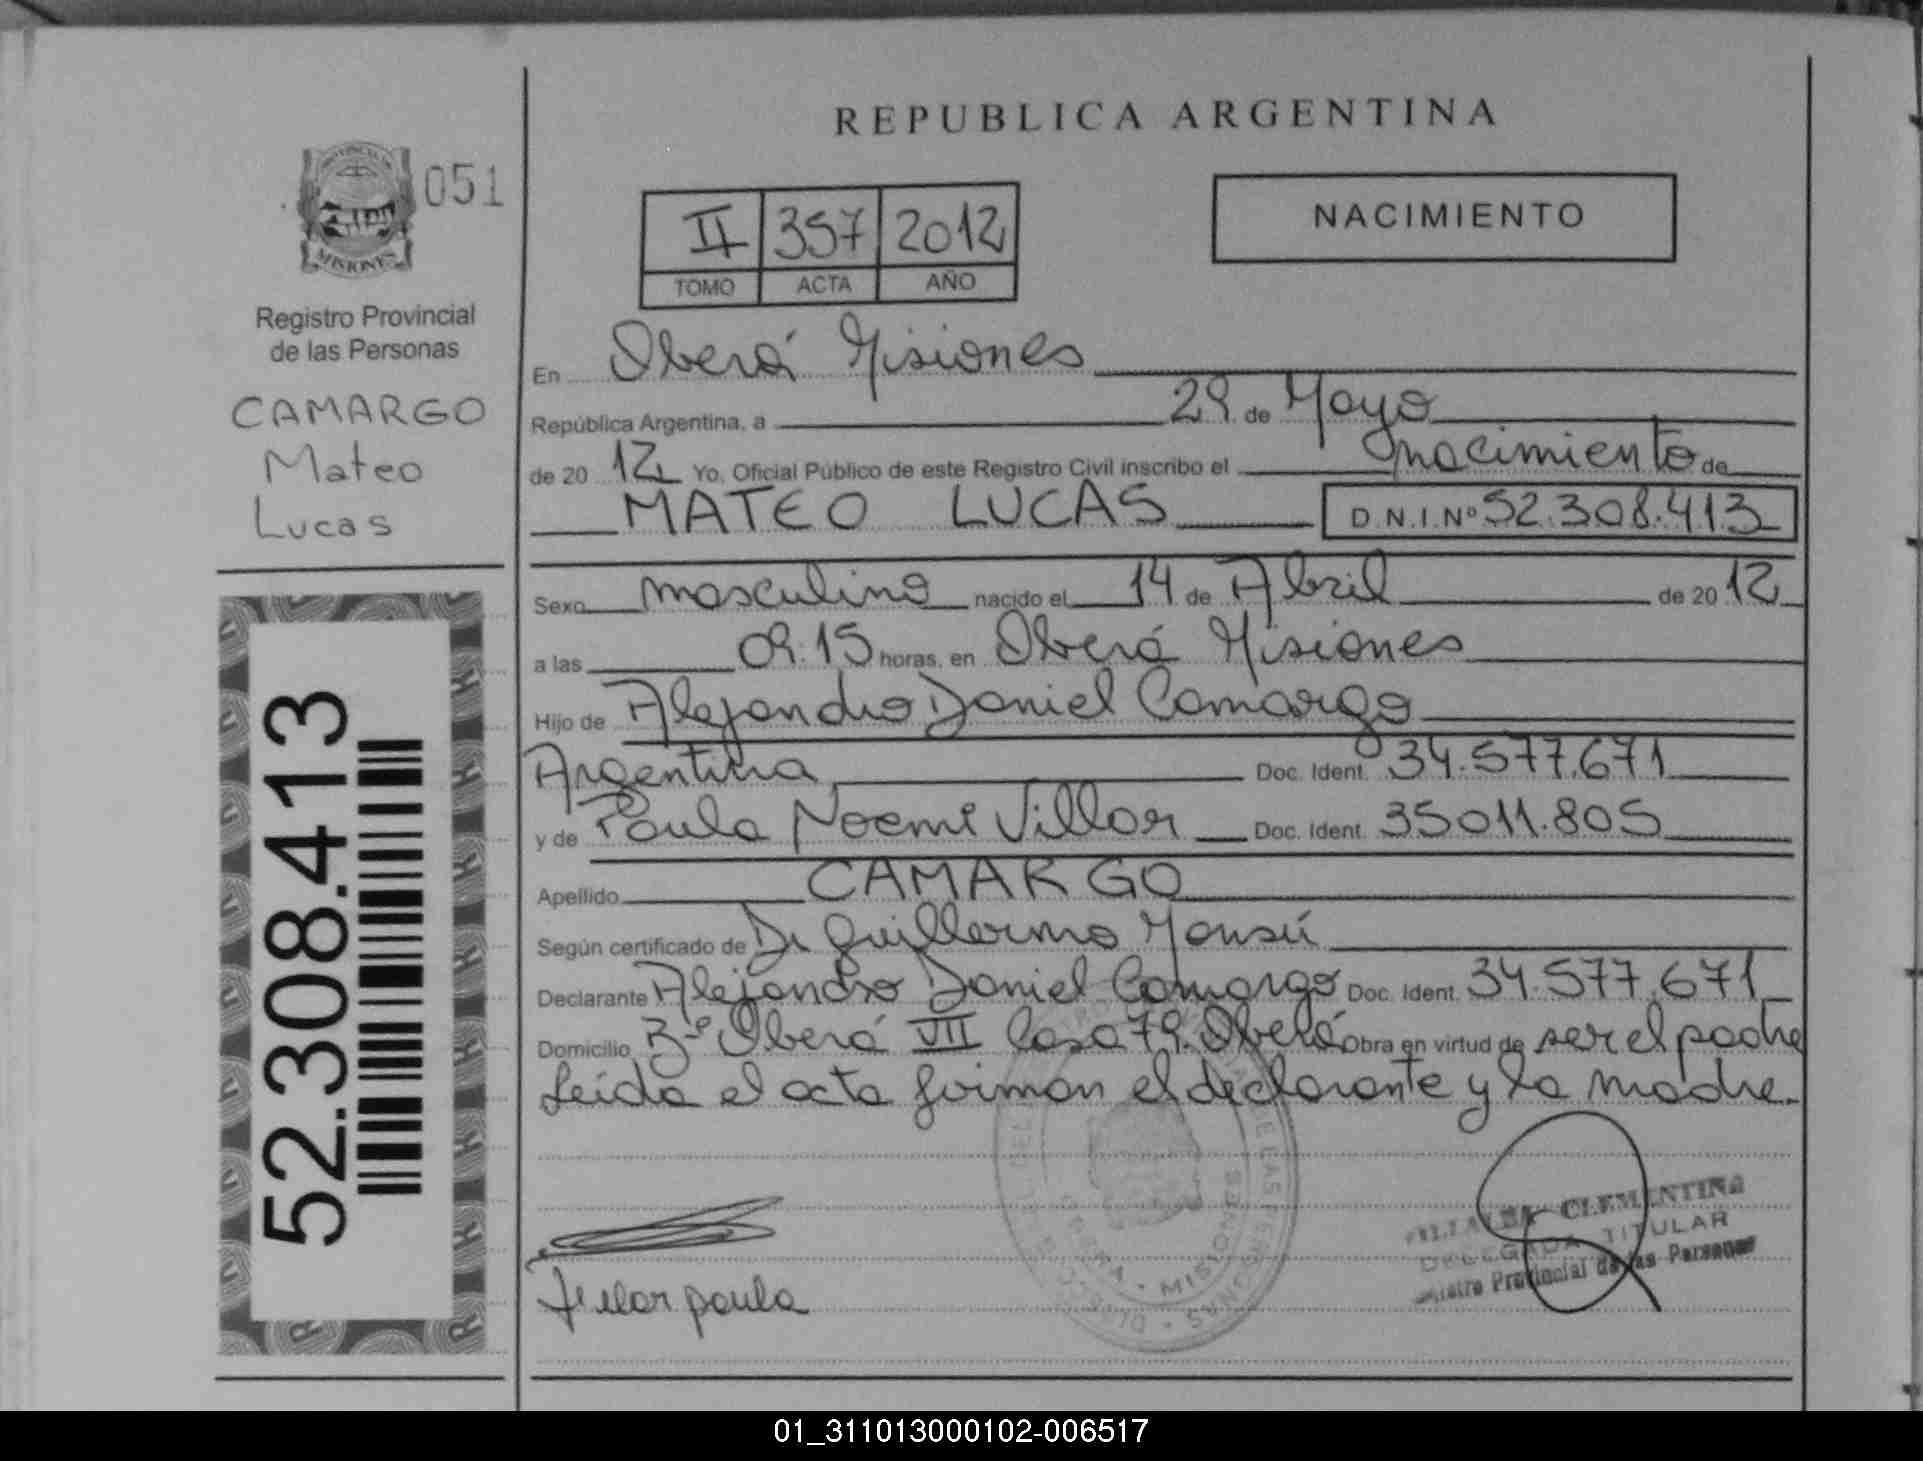 REPUBLICA ARGENTINA
PROVINCIA DE
MISIONES
051
Registro Provincial
de las Personas
CAMARGO
Mateo
Lucas
52.308.413
II 357 2012
TOMO ACTA AÑO
NACIMIENTO
En Oberá Misiones
República Argentina, a 29 de Mayo
de 20 12 Yo, Oficial Público de este Registro Civil inscribo el nacimiento de
MATEO LUCAS D.N.I.Nº 52.308.413
Sexo masculino nacido el 14 de Abril de 20 12
a las 09:15 horas, en Oberá Misiones
Hijo de Alejandro Daniel Camargo
Argentina Doc. Ident. 34.577.671
y de Paula Noemi Villar Doc. Ident. 35011.805
Apellido CAMARGO
Según certificado de Dr Guillermo Monsú
Declarante Alejandro Daniel Camargo Doc. Ident. 34.577.671
Domicilio Bº Oberá VII Casa 79. Oberá Obra en virtud de ser el padre
Leída el acta firman el declarante y la madre.
DE LAS PERSONAS
OBERA - MISIONES
CLEMENTINA
DELEGADA TITULAR
Provincial de las Personas
Villar paula
01_311013000102-006517